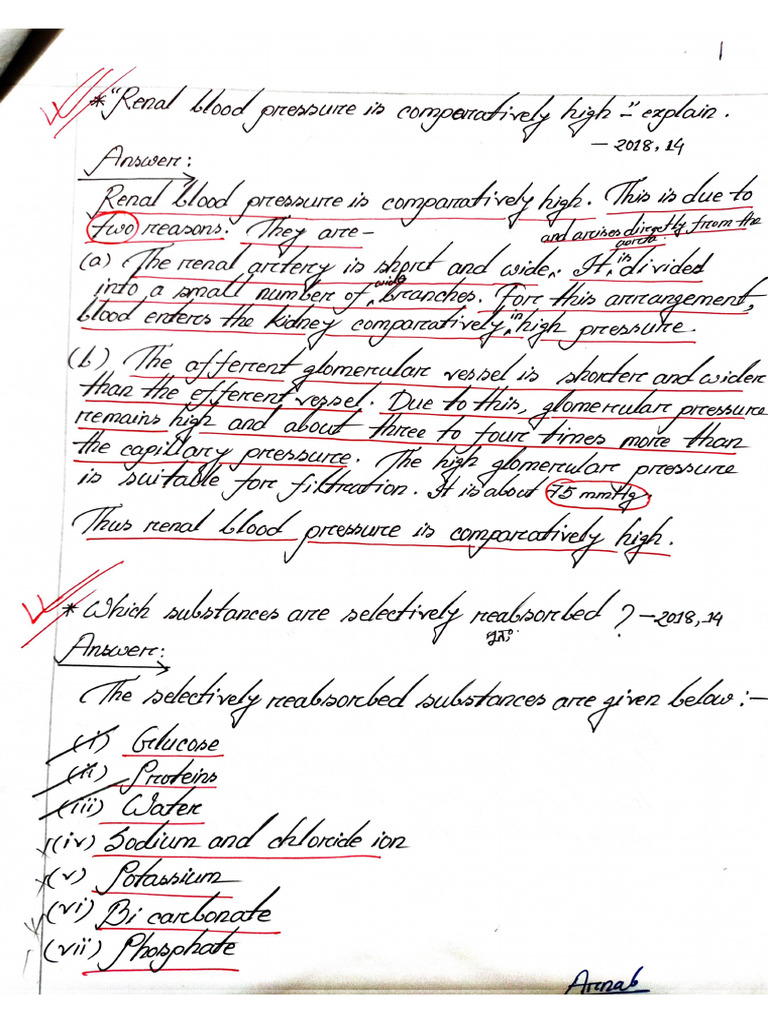 1
* "Renal blood pressure is comparatively high" - explain.
- 2018, 14
Answer:
Renal blood pressure is comparatively high. This is due to
two reasons. They are-
and arises directly from the
aorta.
(a) The renal artery is short and wide. It is divided
into a small number of wide branches. For this arrangement,
blood enters the kidney comparatively in high pressure.
(b) The afferent glomerular vessel is shorter and wider
than the efferent vessel. Due to this, glomerular pressure
remains high and about three to four times more than
the capillary pressure. The high glomerular pressure
is suitable for filtration. It is about 75 mmHg.
Thus renal blood pressure is comparatively high.
* Which substances are selectively reabsorbed ? - 2018, 14
Answer:
The selectively reabsorbed substances are given below :-
(i) Glucose
(ii) Proteins
(iii) Water
(iv) Sodium and chloride ion
(v) Potassium
(vi) Bi carbonate
(vii) Phosphate
Arnab